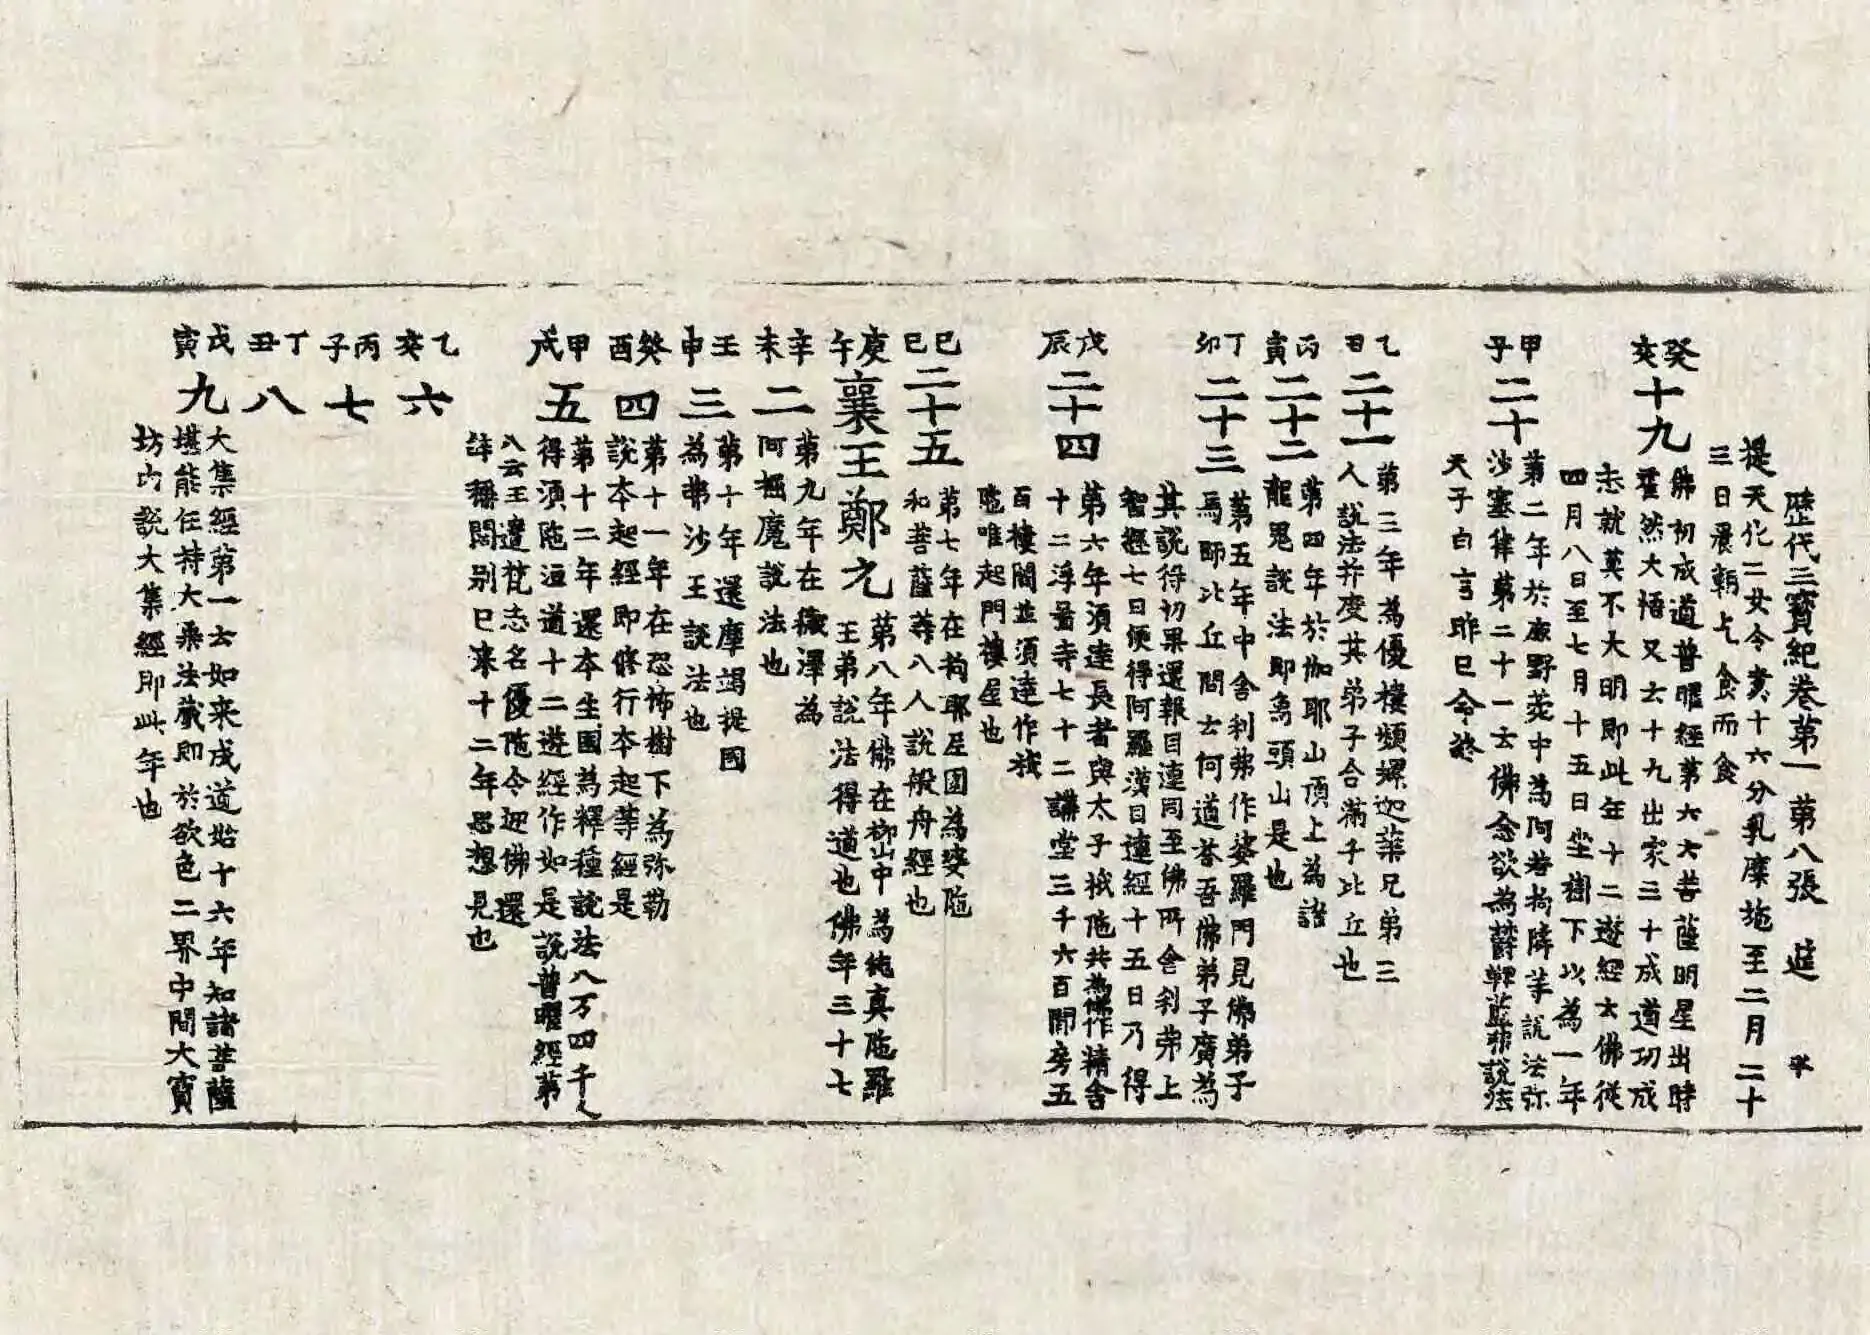 歷代三寶紀卷第一 第八張 㢟
提天化二女令煑十六分乳糜施至二月二十
三日晨朝乞食而食
癸亥 十九 佛初成道普曜經第六云菩薩明星出時
霍然大悟又云十九出家三十成道功成
志就莫不大明即此年十二遊經云佛從
四月八日至七月十五日坐樹下以為一年
甲子 二十 第二年於鹿野菀中為阿若拘隣等說法弥
沙塞律第二十一云佛念欲為欝鞞藍弗說法
天子白言昨已命終
乙丑 二十一 第三年為優樓頻螺迦葉兄弟三
人說法并度其弟子合滿千比丘也
丙寅 二十二 第四年於伽耶山頂上為諸
龍鬼說法即象頭山是也
丁卯 二十三 第五年中舍利弗作婆羅門見佛弟子
馬師比丘問云何道荅吾佛弟子廣為
其說得初果還報目連同至佛所舍利弗上
智經七日便得阿羅漢目連經十五日乃得
戊辰 二十四 第六年須達長者與太子祇陁共為佛作精舍
十二浮啚寺七十二講堂三千六百間房五
百樓閣並須達作祇
陁唯起門樓屋也
己巳 二十五 第七年在拘耶尼園為婆陁
和菩薩等八人說般舟經也
庚午 襄王鄭元 第八年佛在柳山中為純真陁羅
王弟說法得道也佛年三十七
辛未 二 第九年在穢澤為
阿掘魔說法也
壬申 三 第十年還摩竭提國
為弗沙王說法也
癸酉 四 第十一年在恐怖樹下為弥勒
說本起經即修行本起等經是
甲戌 五 第十二年還本生國為釋種說法八万四千人
得須陁洹道十二遊經作如是說普曜經第
八云王遣梵志名優陁令迎佛還
詳稱闊別已來十二年思想見也
乙亥 六
丙子 七
丁丑 八
戊寅 九 大集經第一云如来成道始十六年知諸菩薩
堪能任持大乘法藏即於欲色二界中間大寶
坊內說大集經即此年也